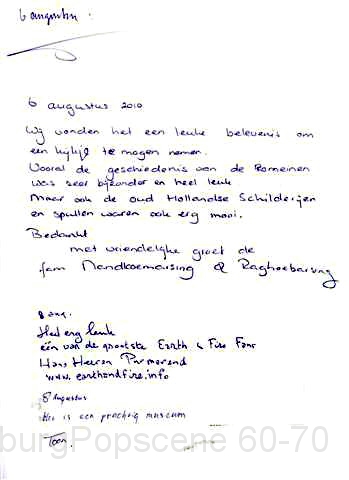 6 augustus :
6 augustus 2010
Wij vonden het een leuke belevenis om
een kijkje te mogen nemen.
Vooral de geschiedenis van de Romeinen
was zeer bijzonder en heel leuk
Maar ook de oud Hollandse Schilderijen
en spullen waren ook erg mooi.
Bedankt
met vriendelijke groet de
fam Nandkoemarsing & Raghoebarsing
8 aug.
Heel erg leuk
één van de grootste Earth & Fire Fans
Hans Heeren Purmerend
www.earthandfire.info
8 Augustus
Het is een prachtig museum
Toon.
burgPopscene 60-70